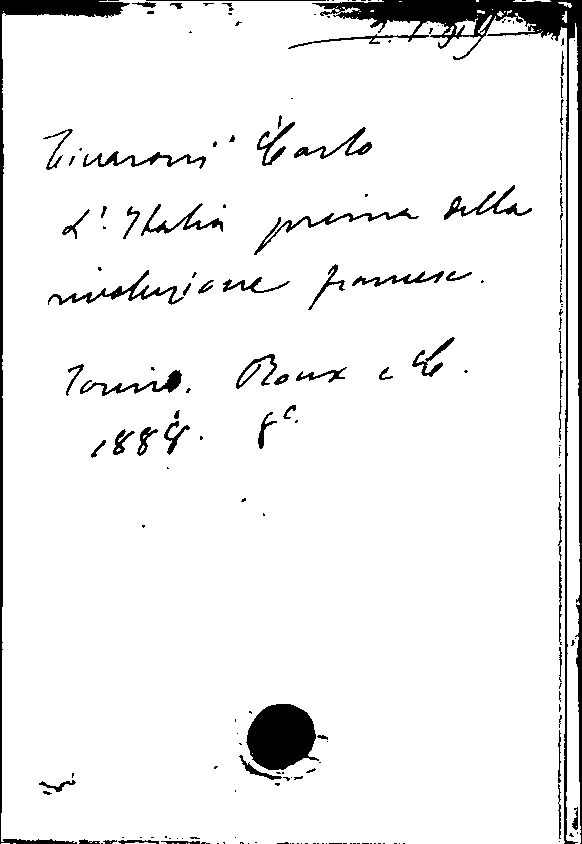 2. I. 919
Tivaroni Carlo
L'Italia prima della
rivoluzione francese.
Torino. Roux e C.
1888. 8°.